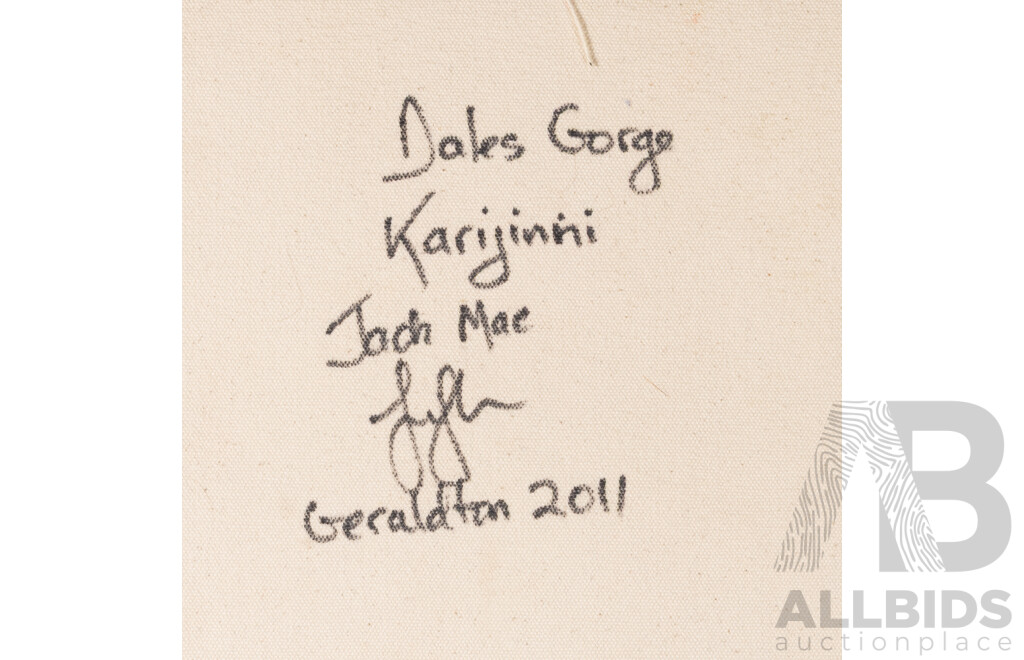 Dales Gorge
Karijinni
Jack Mac
Geraldton 2011
AB
ALLBIDS
auctionplace